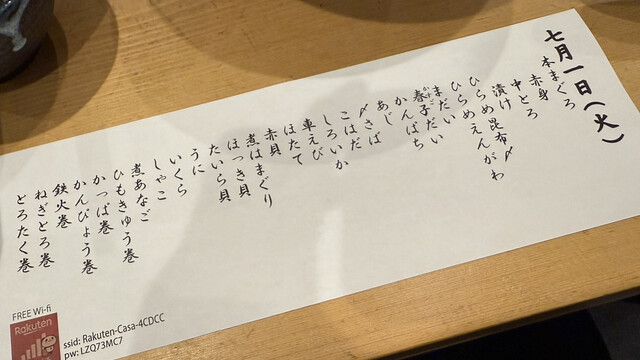 七月一日(火)
本まぐろ
赤身
中とろ
漬け
ひらめ昆布〆
ひらめえんがわ
まだい
春子だい
かすご
かんぱち
あじ
〆さば
こはだ
しろいか
車えび
ほたて
赤貝
煮はまぐり
ほっき貝
たいら貝
うに
いくら
しゃこ
煮あなご
ひもきゅう巻
かっぱ巻
かんぴょう巻
鉄火巻
ねぎとろ巻
とろたく巻
FREE Wi-fi
Rakuten
ssid: Rakuten-Casa-4CDCC
pw: LZQ73MC7